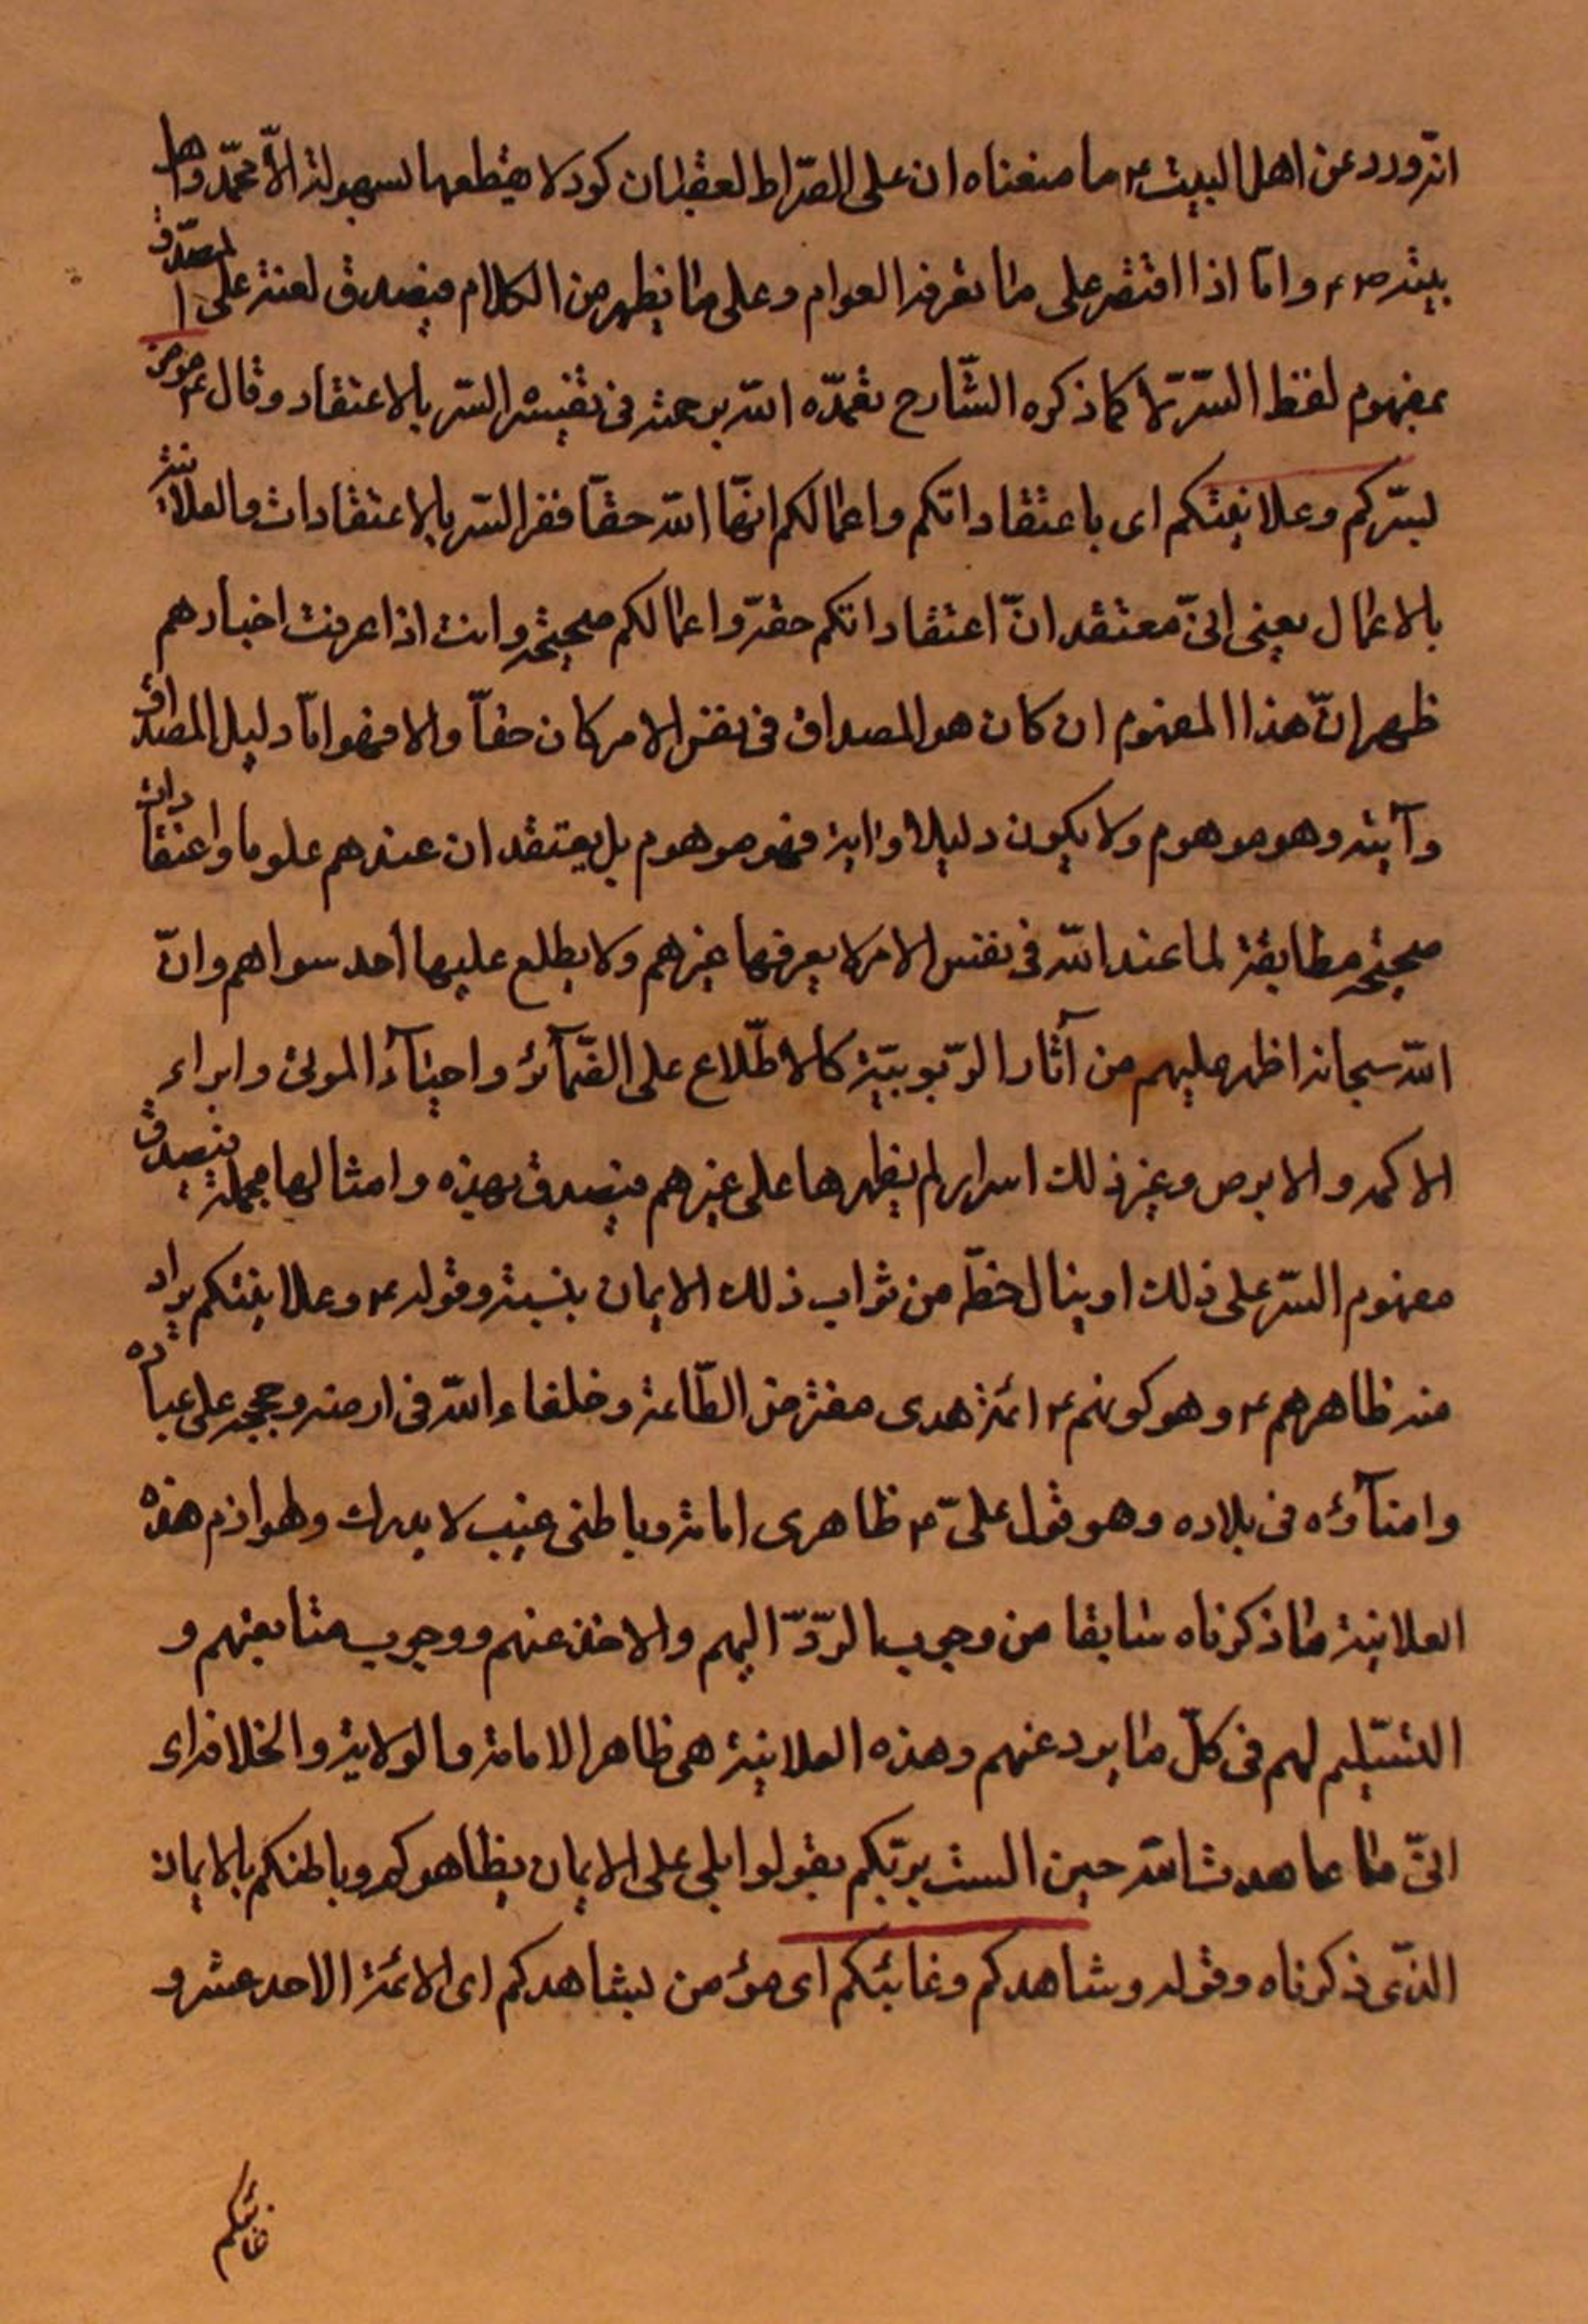 انّه ورد عن اهل البيت ع ما معناه ان على الصّراط لعقبات كود لا يقطعها بسهولة الّا محمّد واهل
بيته ص ع وامّا اذا اقتصر على ما تعرفه العوام وعلى ما يظهر من الكلام فيصدق لعنة على المصدّق
بمفهوم لفظ السّرّ لا كما ذكره الشّارح تغمّده الله برحمته فى تفسيره السّر بالاعتقاد وقال ع مؤمن
بسّركم وعلانيتكم اى باعتقاداتكم واعمالكم انّها الله حقّا ففسر السّر بالاعتقادات والعلانية
بالاعمال يعنى انّى معتقد انّ اعتقاداتكم حقّة واعمالكم صحيحة وانت اذا عرفت اخبارهم
ظهر انّ هذا المفهوم ان كان هو المصداق فى نفس الامر كان حقّاً والا فهو امّا دليل المصداق
وآيته وهو موهوم ولا يكون دليلا واية فهو موهوم بل يعتقد ان عندهم علوما واعتقادات
صحيحة مطابقة لما عند الله فى نفس الامر لا يعرفها غيرهم ولا يطلع عليها أحد سواهم وانّ
الله سبحانه اظهر عليهم من آثار الرّبوبيّة كالاطّلاع على الضّمآئر واحيآء الموتى وابراء
الاكمه والابرص وغير ذلك اسرار لم يظهرها على غيرهم فيصدق بهذه وامثالها مجملة فيصدق
مفهوم السّر على ذلك او ينال حظّه من ثواب ذلك الايمان بنسبته وقوله ع وعلانيتكم يراد
منه ظاهرهم ع وهو كونهم ع ائمة هدى مفترض الطّاعة وخلفاء الله فى ارضه وحججه على عباده
وامنآؤه فى بلاده وهو قول علىّ ع ظاهرى امامة وباطنى غيب لا يدرك ولوازم هذه
العلانية ما ذكرناه سابقا من وجوب الردّ اليهم والاخذ عنهم ووجوب متابعتهم و
التسليم لهم فى كلّ ما يرد عنهم وهذه العلانية هى ظاهر الامامة والولاية والخلافة اى
انّى ما عاهدت الله حين الست بربّكم بقولوا بلى على الايمان بظاهركم وباطنكم بالايمان
الذّى ذكرناه وقوله وشاهدكم وغائبكم اى مؤمن بشاهدكم اى الائمة الاحد عشر و
غائبكم